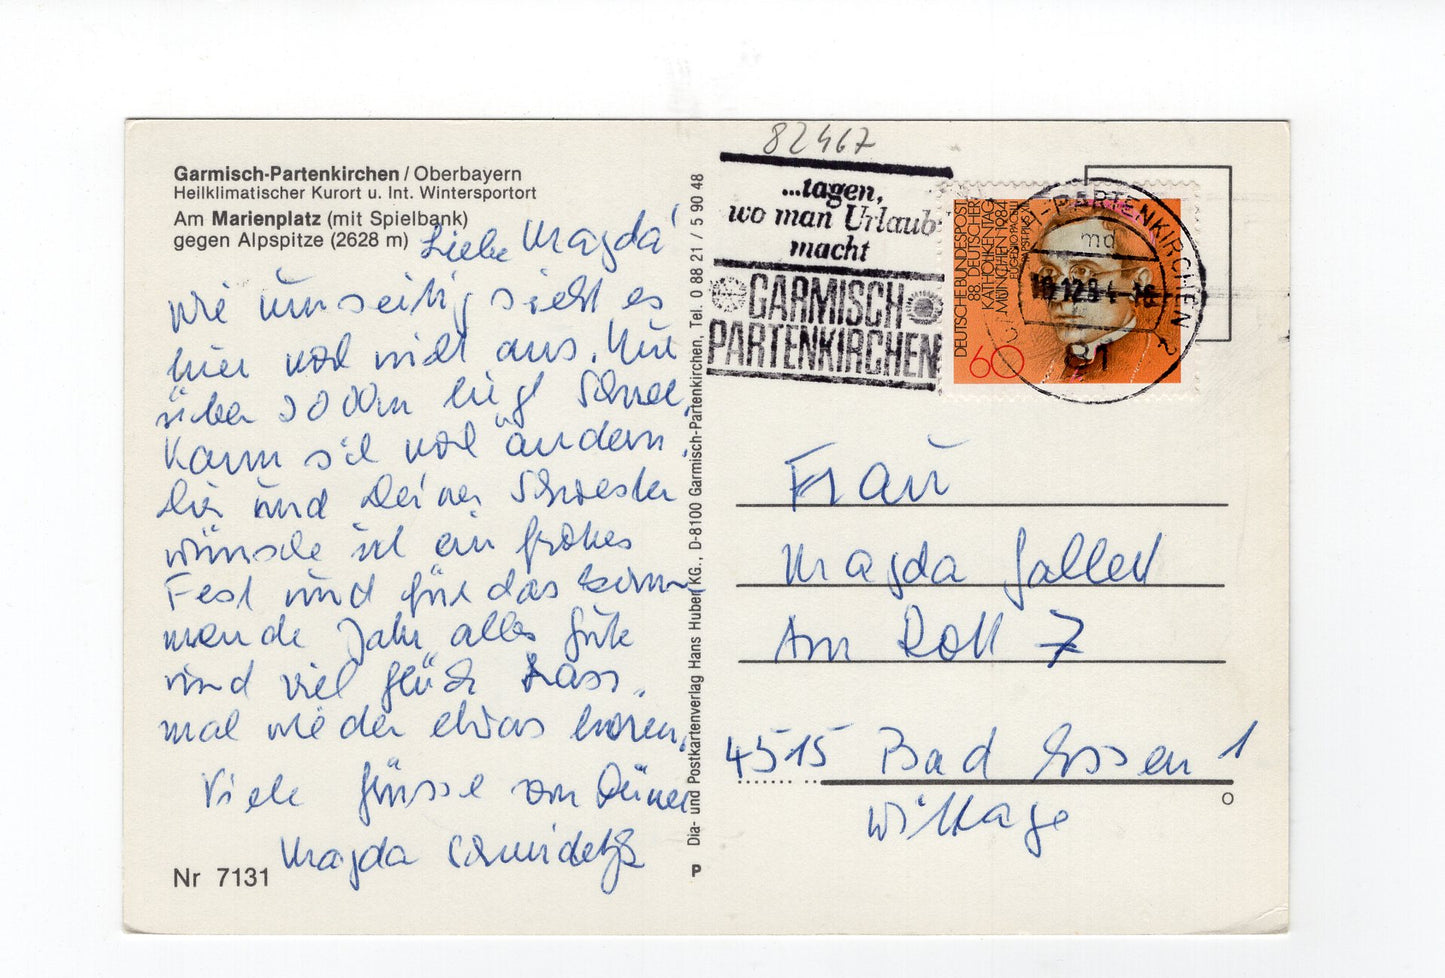 82467
Garmisch-Partenkirchen / Oberbayern
Heilklimatischer Kurort u. Int. Wintersportort
Am Marienplatz (mit Spielbank)
gegen Alpspitze (2628 m)
Liebe Magda
wie umseitig sieht es
hier noch nicht aus. Nur
über 2000m liegt Schnee.
Kann sich noch ändern.
Dir und Deiner Schwester
wünsche ich ein frohes
Fest und für das kom
mende Jahr alles gute
und viel glück. Lass
mal wieder etwas hören.
Viele grüsse von Deiner
Magda
Nr 7131
Dia- und Postkartenverlag Hans Huber KG., D-8100 Garmisch-Partenkirchen, Tel. 0 88 21 / 5 90 48
P
...tagen,
wo man Urlaub
macht
GARMISCH
PARTENKIRCHEN
DEUTSCHE BUNDESPOST
88. DEUTSCHER
KATHOLIKENTAG
MÜNCHEN 1984
EUGENIO PACELLI
PAPST PIUS XII.
60
-PARTENKIRCHEN 2
81
Frau
Magda
Am 7
4515 Bad Essen 1
Wittlage
O